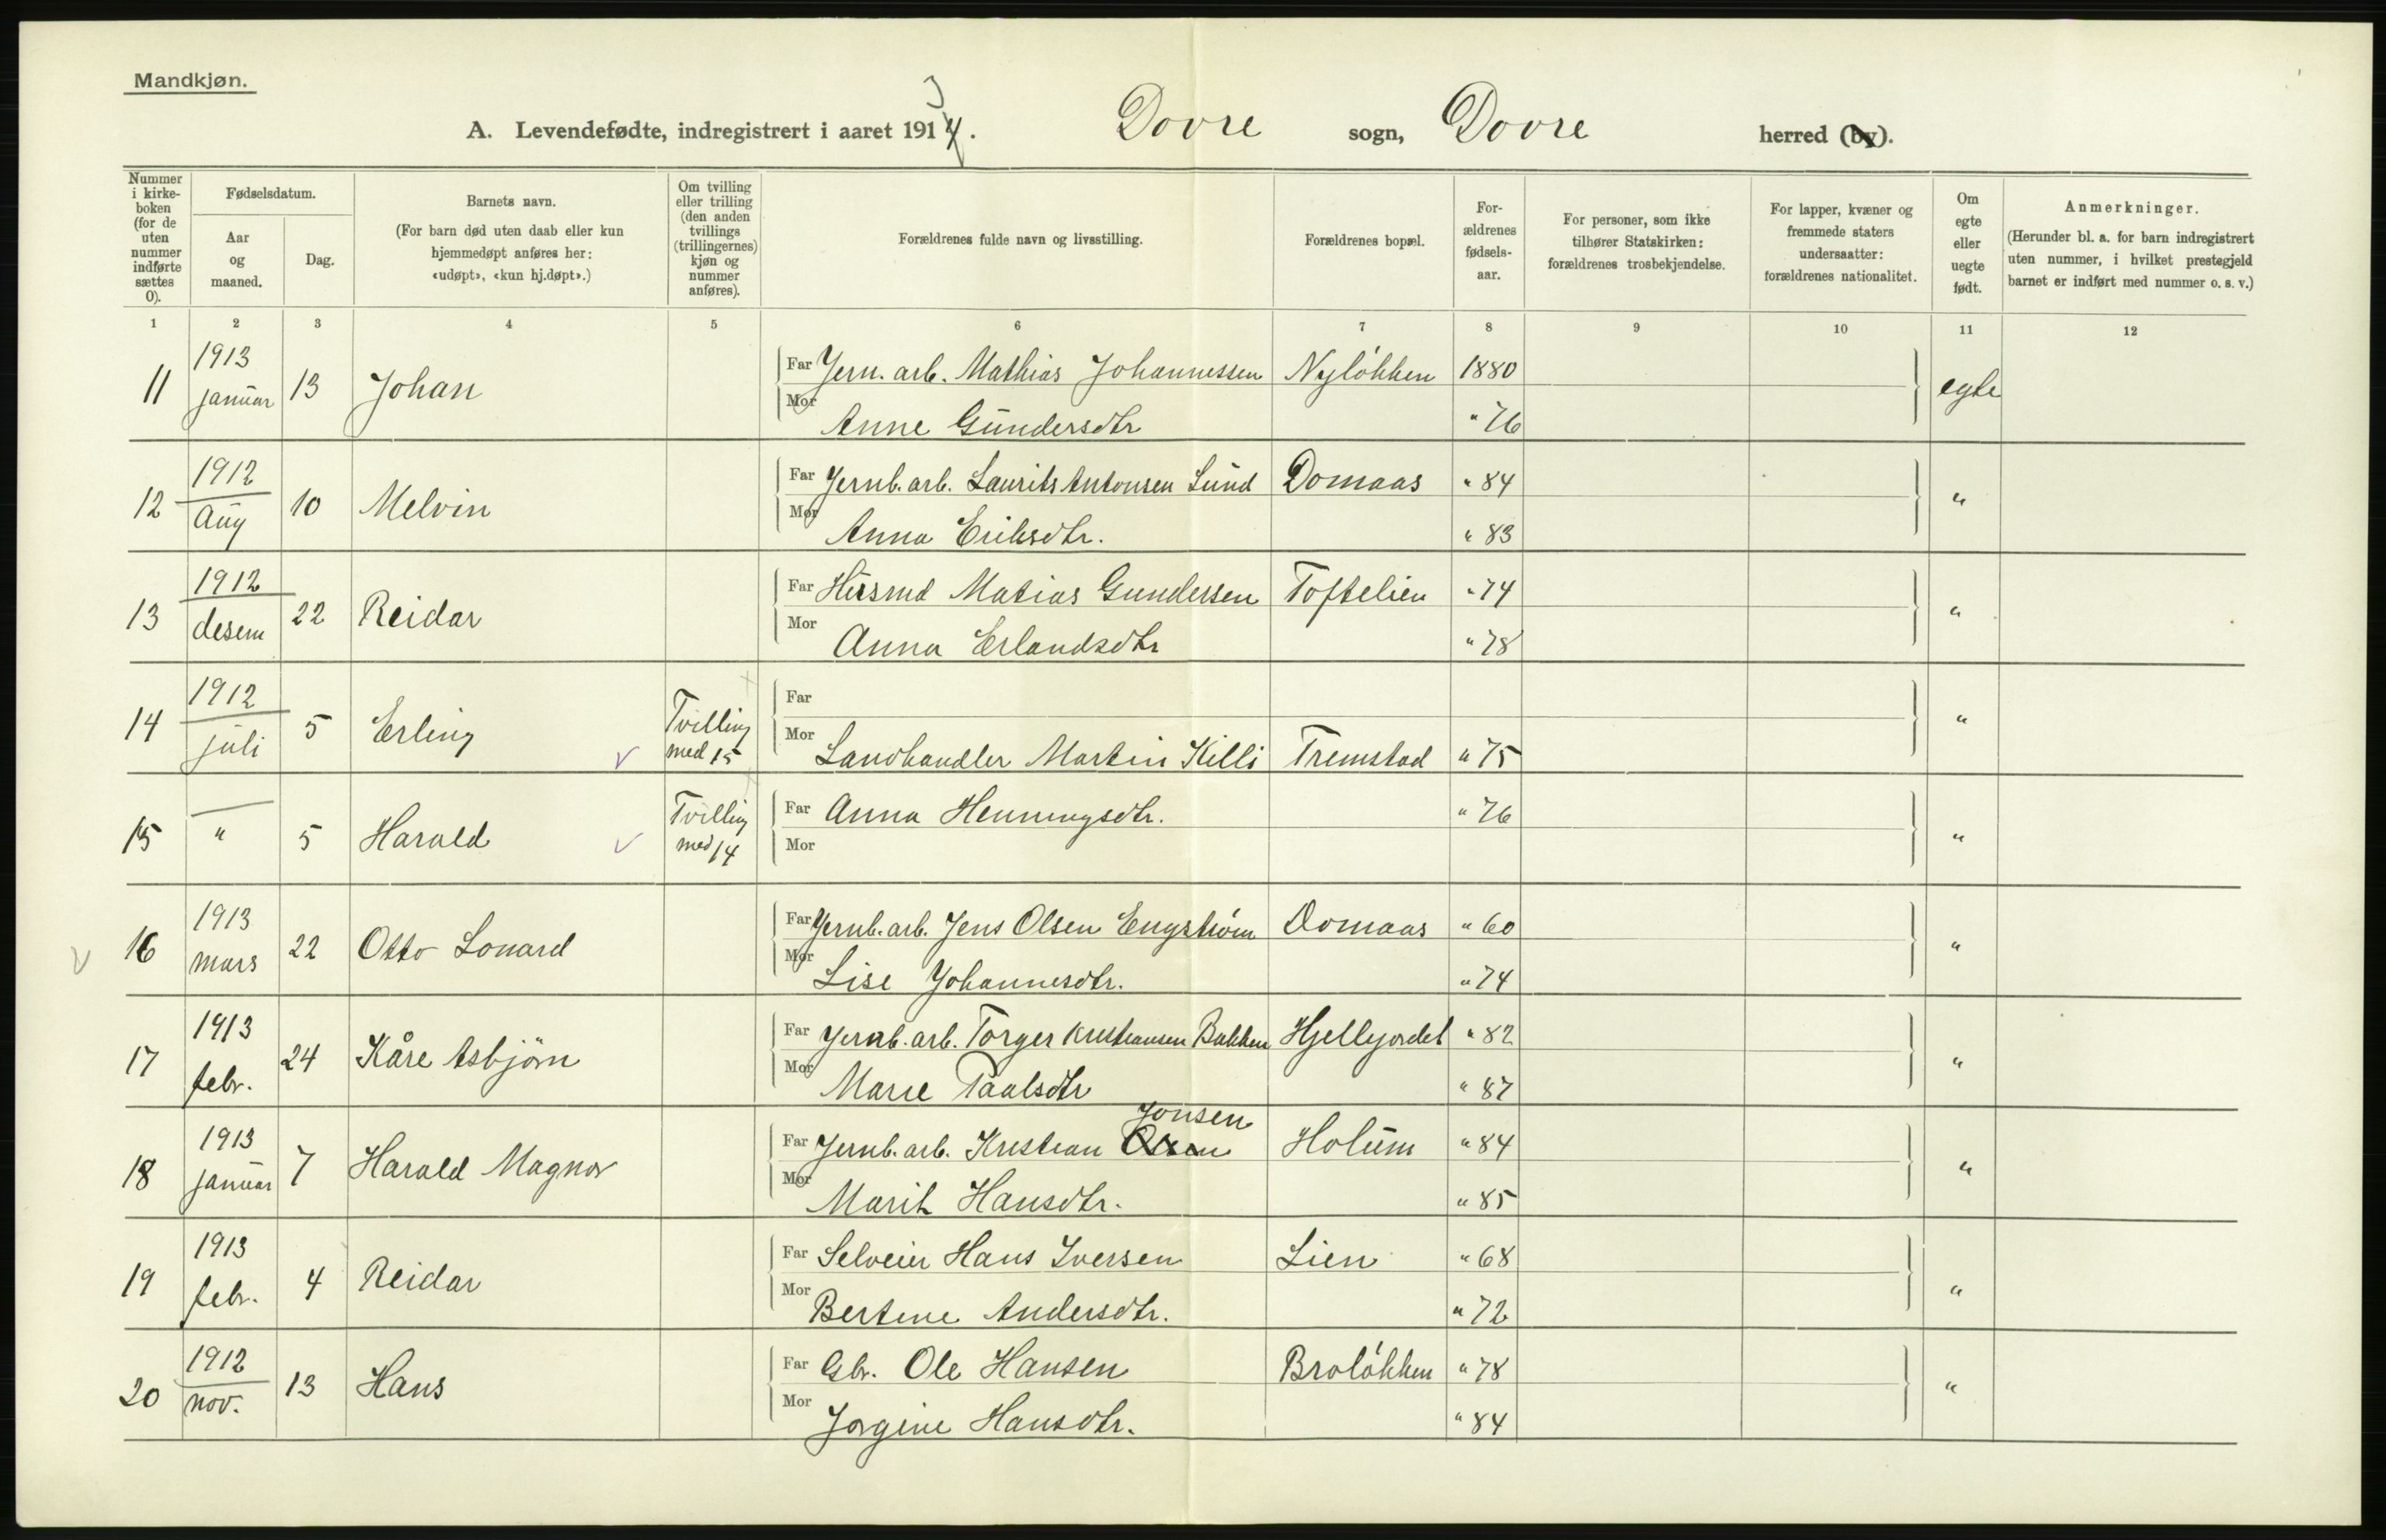 Mandkjøn.
A. Levendefødte, indregistrert i aaret 1913. Dovre sogn, Dovre herred (by).
Nummer i kirkeboken (for de uten nummer indførte sættes 0).
Fødselsdatum.
Aar og maaned.
Dag.
Barnets navn.
(For barn død uten daab eller kun hjemmedøpt anføres her: «udøpt», «kun hj.døpt».)
Om tvilling eller trilling (den anden tvillings (trillingernes) kjøn og nummer anføres).
Forældrenes fulde navn og livsstilling.
Forældrenes bopæl.
Forældrenes fødselsaar.
For personer, som ikke tilhører Statskirken: forældrenes trosbekjendelse.
For lapper, kvæner og fremmede staters undersaatter: forældrenes nationalitet.
Om egte eller uegte født.
Anmerkninger.
(Herunder bl. a. for barn indregistrert uten nummer, i hvilket prestegjeld barnet er indført med nummer o. s. v.)
1 2 3 4 5 6 7 8 9 10 11 12
11 1913 januar 13 Johan Far Jern. arb. Mathias Johannessen Nyløkken 1880 egte
Mor Anne Gundersdtr " 76
12 1912 Aug 10 Melvin Far Jernb. arb. Laurits Antonsen Lund Domaas " 84 "
Mor Anna Eriksdtr. " 83
13 1912 desem 22 Reidar Far Husmd Matias Gundersen Toftelien " 74 "
Mor Anna Erlandsdtr " 78
14 1912 juli 5 Erling Tvilling med 15 Far
Mor Landhandler Martin Killi Tremstad " 75 "
15 " 5 Harald Tvilling med 14 Far Anna Henningsdtr. " 76 "
Mor
16 1913 mars 22 Otto Lonard Far Jernb. arb. Jens Olsen Engstrøm Domaas " 60 "
Mor Lise Johannesdtr. " 74
17 1913 febr. 24 Kåre Asbjørn Far Jernb. arb. Torger Kristiansen Bakken Hjellejordet " 82 "
Mor Marie Paalsdtr " 87
Jonsen
18 1913 januar 7 Harald Magnor Far Jernb. arb. Kristian Olsen Holum " 84 "
Mor Marit Hansdtr. " 85
19 1913 febr. 4 Reidar Far Selveier Hans Iversen Lien " 68 "
Mor Bertine Andersdtr. " 72
20 1912 nov. 13 Hans Far Gbr. Ole Hansen Broløkken " 78 "
Mor Jørgine Hansdtr. " 84